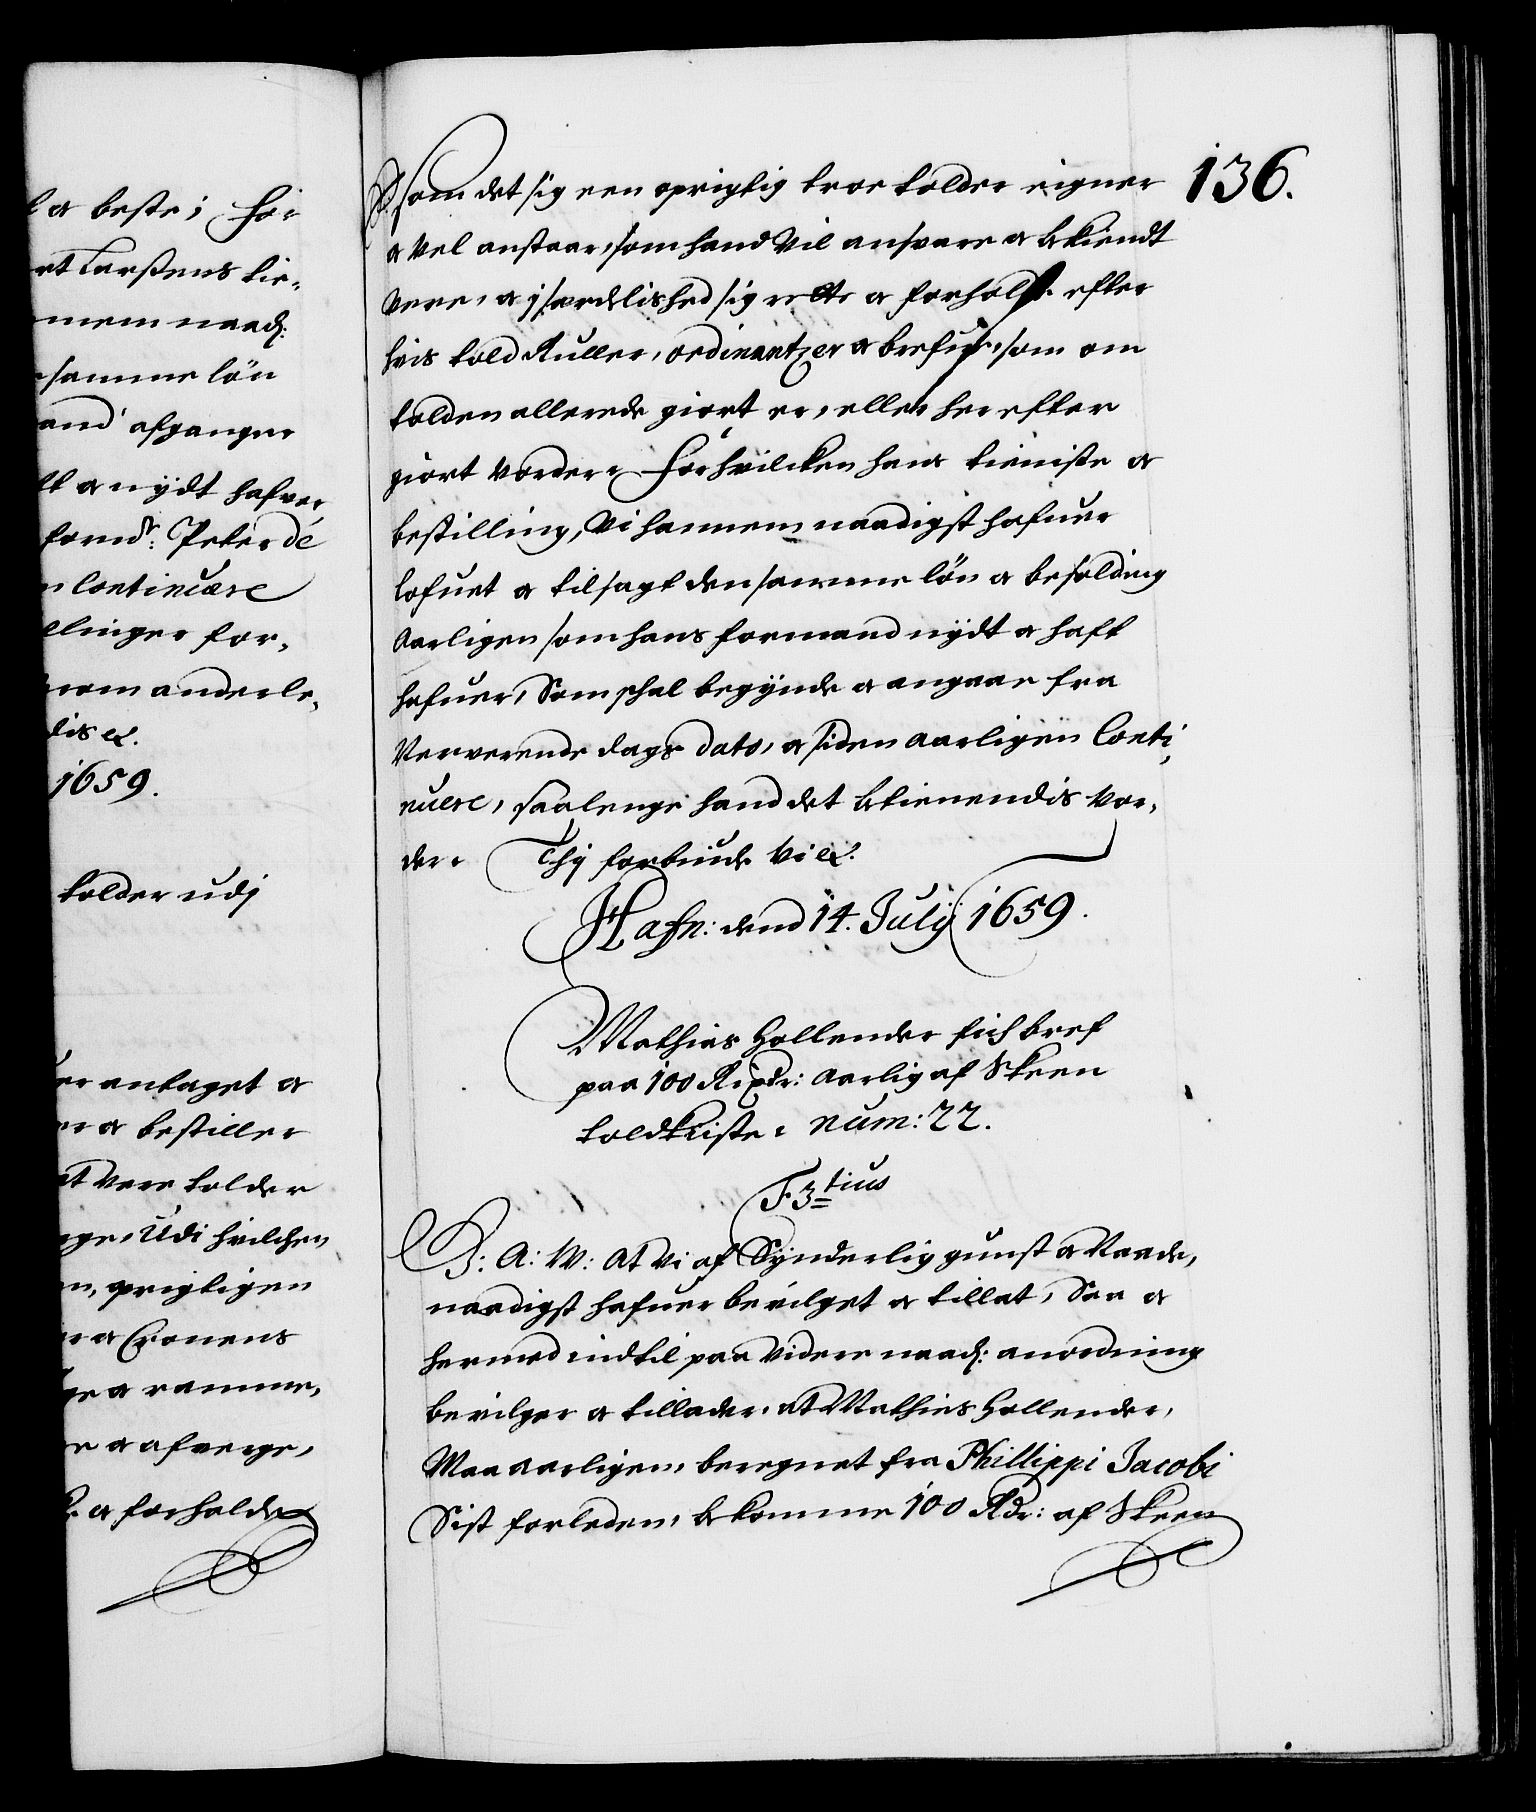 l a beste; for
rt Carstens tie,
mem naad:
samme lön
and afganger
lt a nÿdt hafver
fornd: Peter dé
n Continuere
llinger for,
rom anderle,
dis &.
1659.
tolder udj
er antaget a
er a bestiller
at vere tolder
ge, Udi hvilchen
en, oprigtigen
er a Cronens
ge a ramme,
re a afverge,
a forholde
136.
som det sig een oprigtig troe tolder eigner
a vel anstaar, som hand vil ansvare a bekiendt
vere, a j særdelished sig rette a forholde efter
hvis told Ruller, ordinantzer a brefue, som om
tolden allerede giort er, eller her efter
giort vorder. For hvilcken hans tieniste a
bestilling, Vi hannem naadigst hafuer
lofuet a tilsagt den samme lön a besolding
Aarligen som hans formand nÿdt a haft
hafuer, Som schal begÿnde a angaae fra
Nerverende dags dato, a siden aarligen Conti,
nuere, saalenge hand det betienendis vor,
der. Thj forbiude Vi &.
Hafn: dend 14. Julij 1659.
Mathias Hollender fich bref
paa 100 Rixdr: aarlig af Skeen
toldkiste. num: 22.
F. 3tius
G: A: W: At Vi af Sÿnderlig gunst a Naade,
naadigst hafuer bevilget a tillat, Saa a
hermed indtil paa videre naad: anordning
bevilger a tillader, at Mathies Hollender,
Maa aarligen, beregnet fra Phillippi Jacobi
Sist forleden, bekomme 100 Rdr: af Skeen